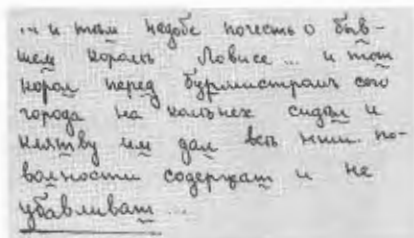 ... и тѣм надобе почесть о быв-
шем королѣ Ловисе ... и тот
корол перед бурмистрамъ сего
города на колѣнех сидѣл и
клятву им дал всѣ их по-
волности содержат и не
убавливат ...